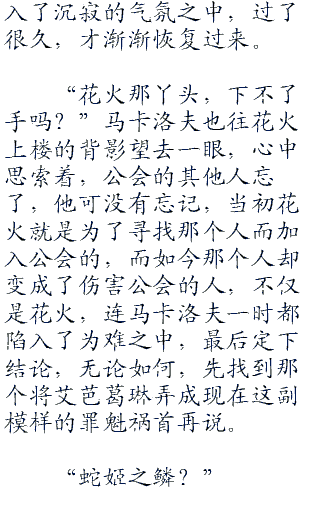 入了沉寂的气氛之中，过了
很久，才渐渐恢复过来。
“花火那丫头，下不了
手吗？”马卡洛夫也往花火
上楼的背影望去一眼，心中
思索着，公会的其他人忘
了，他可没有忘记，当初花
火就是为了寻找那个人而加
入公会的，而如今那个人却
变成了伤害公会的人，不仅
是花火，连马卡洛夫一时都
陷入了为难之中，最后定下
结论，无论如何，先找到那
个将艾芭葛琳弄成现在这副
模样的罪魁祸首再说。
“蛇姬之鳞？”